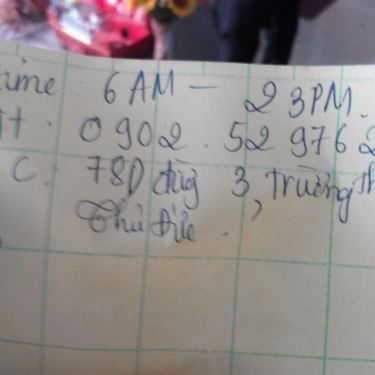 ime 6AM - 23PM.
t. 0902.52 976 2
C. 78D đường 3, trường th
Thủ Đức.